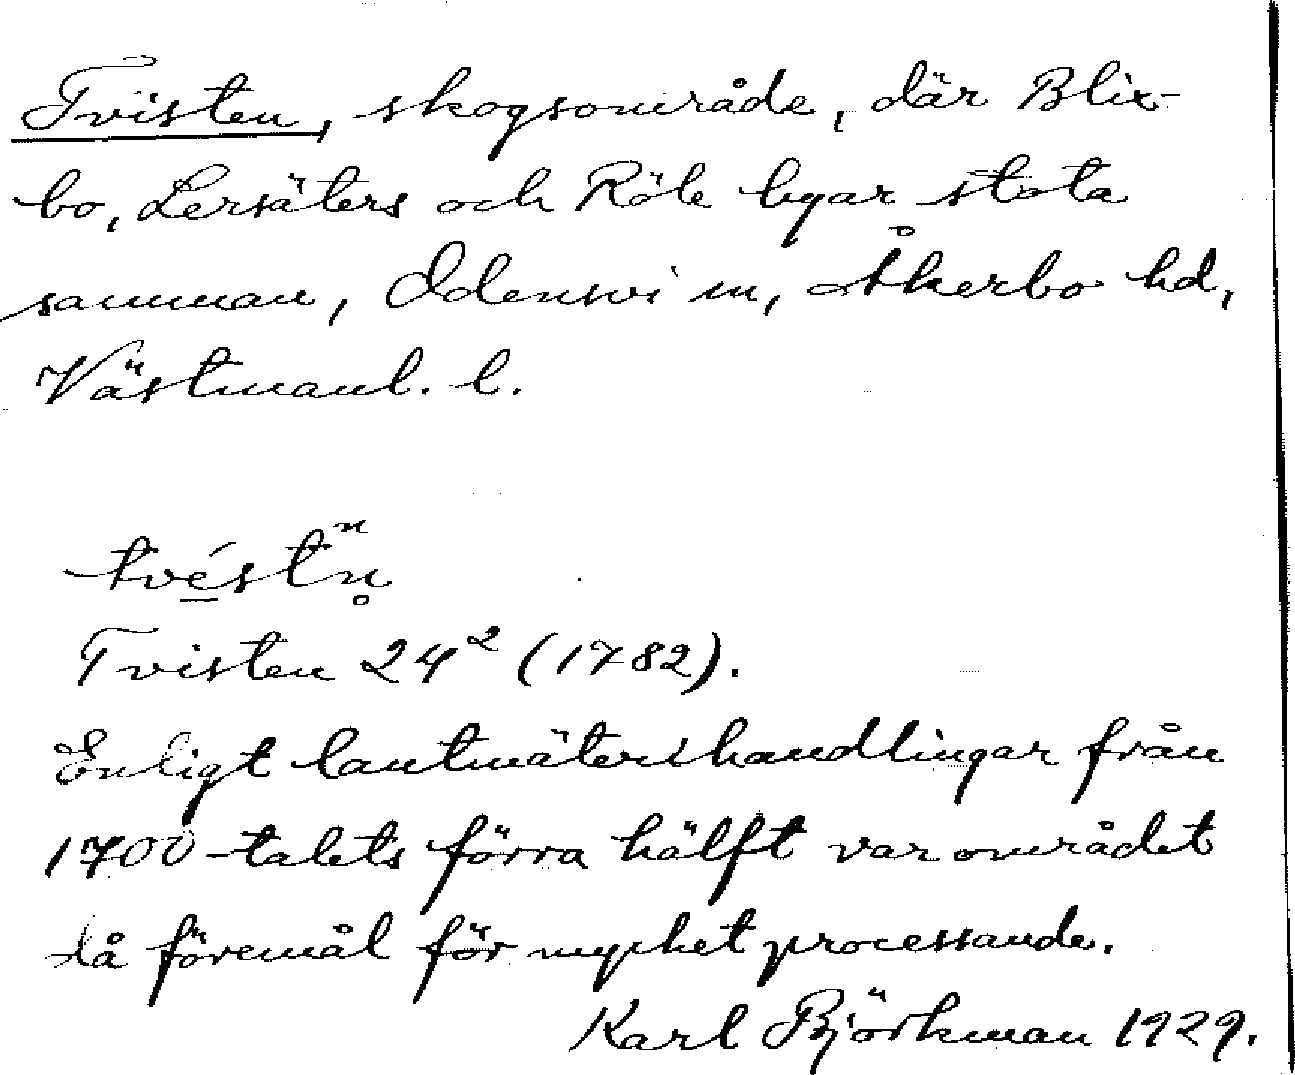 Tvisten, skogsområde, där Blix-
bo, Lersäters och Röle byar stöta
samman, Odensvi sn, Åkerbo hd,
Västmanl. l.
Tvisten 24² (1782).
Enligt lantmäterihandlingar från
1700-talets förra hälft var området
då föremål för mycket processande.
Karl Björkman 1929.